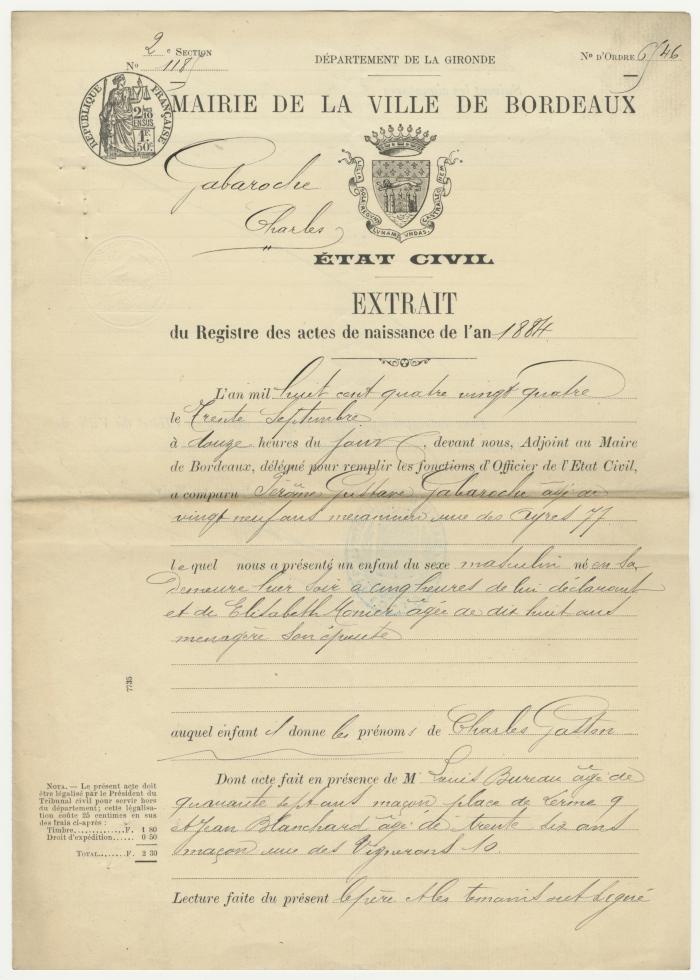 2e SECTION
No 1185
DÉPARTEMENT DE LA GIRONDE
No D'ORDRE 6546
RÉPUBLIQUE FRANÇAISE
2/10 EN SUS
1F. 50c.
MAIRIE DE LA VILLE DE BORDEAUX
Gabaroche
Charles
"
LILIA SOLA REGUNT LUNAM UNDAS CASTRA LEONEM
ÉTAT CIVIL
EXTRAIT
du Registre des actes de naissance de l'an 1884
L'an mil huit cent quatre vingt quatre
le trente Septembre
à douze heures du jour, devant nous, Adjoint au Maire
de Bordeaux, délégué pour remplir les fonctions d'Officier de l'Etat Civil,
a comparu Jérôme Gustave Gabaroche âgé de
vingt neuf ans mécanicien rue des Ayres 77
lequel nous a présenté un enfant du sexe masculin né en sa
demeure hier soir à cinq heures de lui déclarant
et de Elisabeth Monier âgée de dix huit ans
menagère son épouse
auquel enfant il donne les prénoms de Charles Gaston
Dont acte fait en présence de M Louis Bureau âgé de
quarante sept ans maçon place de Lerme 9
et Jean Blanchard âgé de trente six ans
maçon rue des Vignerons 10
Lecture faite du présent le père et les temoins ont signé
7735
NOTA. — Le présent acte doit
être légalisé par le Président du
Tribunal civil pour servir hors
du département; cette légalisa-
tion coûte 25 centimes en sus
des frais ci-après :
Timbre............F. 1 80
Droit d'expédition...... 0 50
TOTAL......F. 2 30